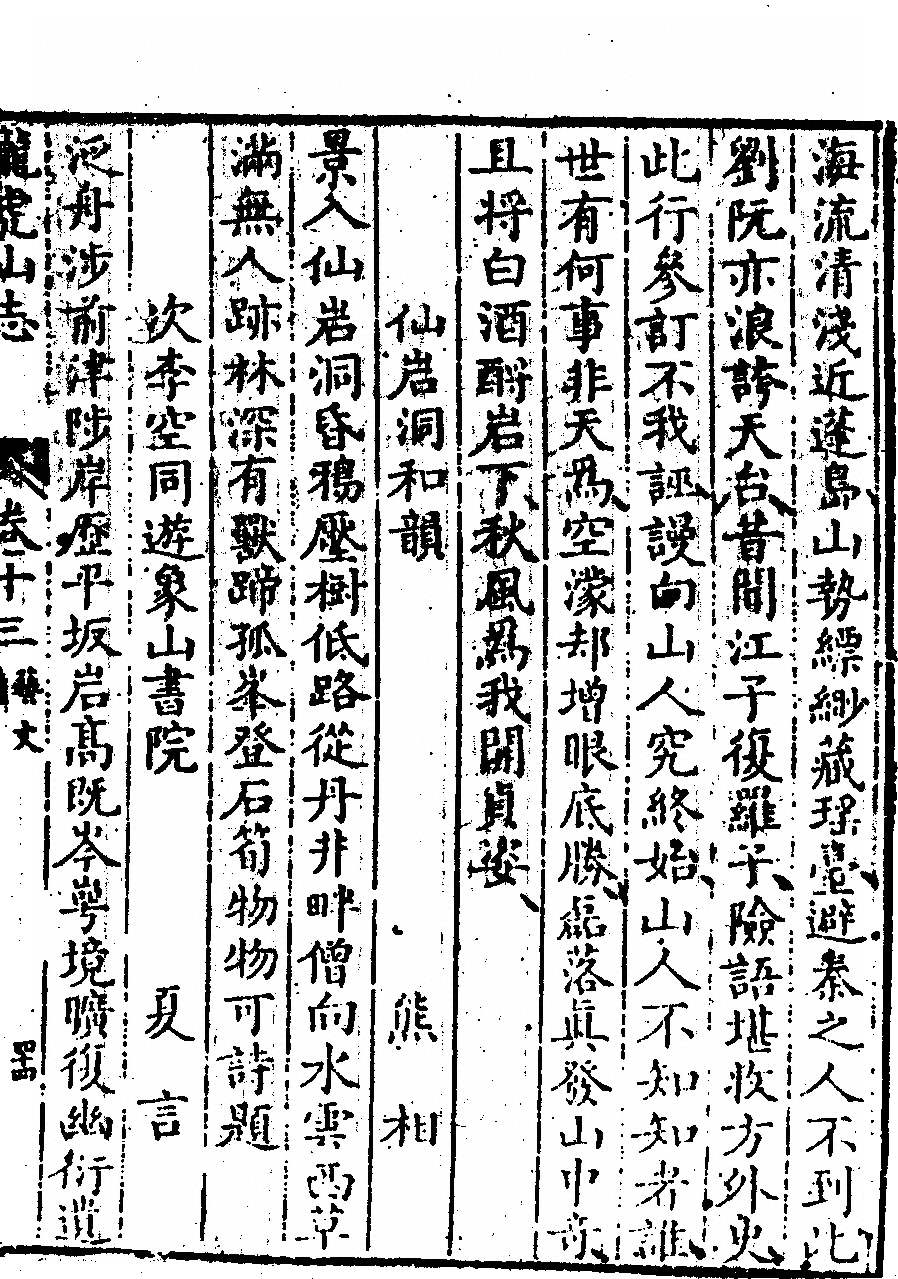 海流清淺近蓬島山勢縹緲藏瑤臺避秦之人不到此
劉阮亦浪誇天台昔聞江子復羅子險語堪收方外史
此行參訂不我誣謾向山人究終始山人不知知者誰
世有何事非天爲空濛却增眼底勝磊落眞發山中奇
且将白酒酹岩下秋風爲我開貞姿
仙岩洞和韻 熊相
景入仙岩洞昏鴉壓樹低路從丹井畔僧向水雲西草
滿無人跡林深有獸蹄孤峯登石筍物物可詩題
次李空同遊象山書院 夏言
泛舟涉前津陟岸歷平坂岩髙既岑崿境曠復幽衍遺
龍虎山志 卷十三 藝文